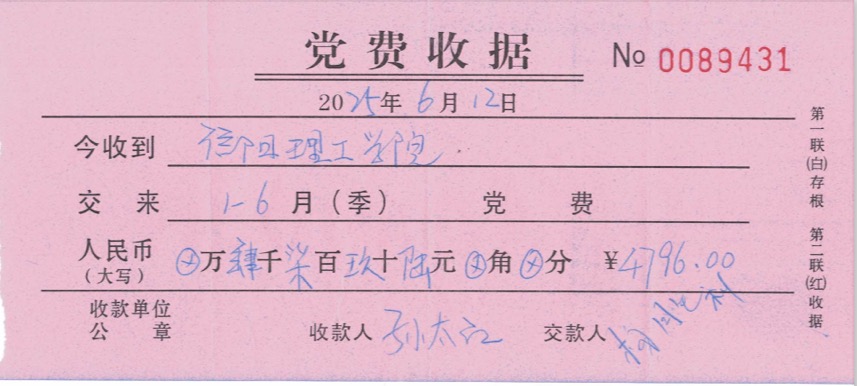 党费收据 № 0089431
2025年6月12日
今收到 德阳理工学院
交来 1-6月(季) 党费
人民币(大写) ⊗万肆千柒百玖十陆元⊗角⊗分 ¥4796.00
收款单位公章 收款人 孙太江 交款人
第一联(白)存根 第二联(红)收据